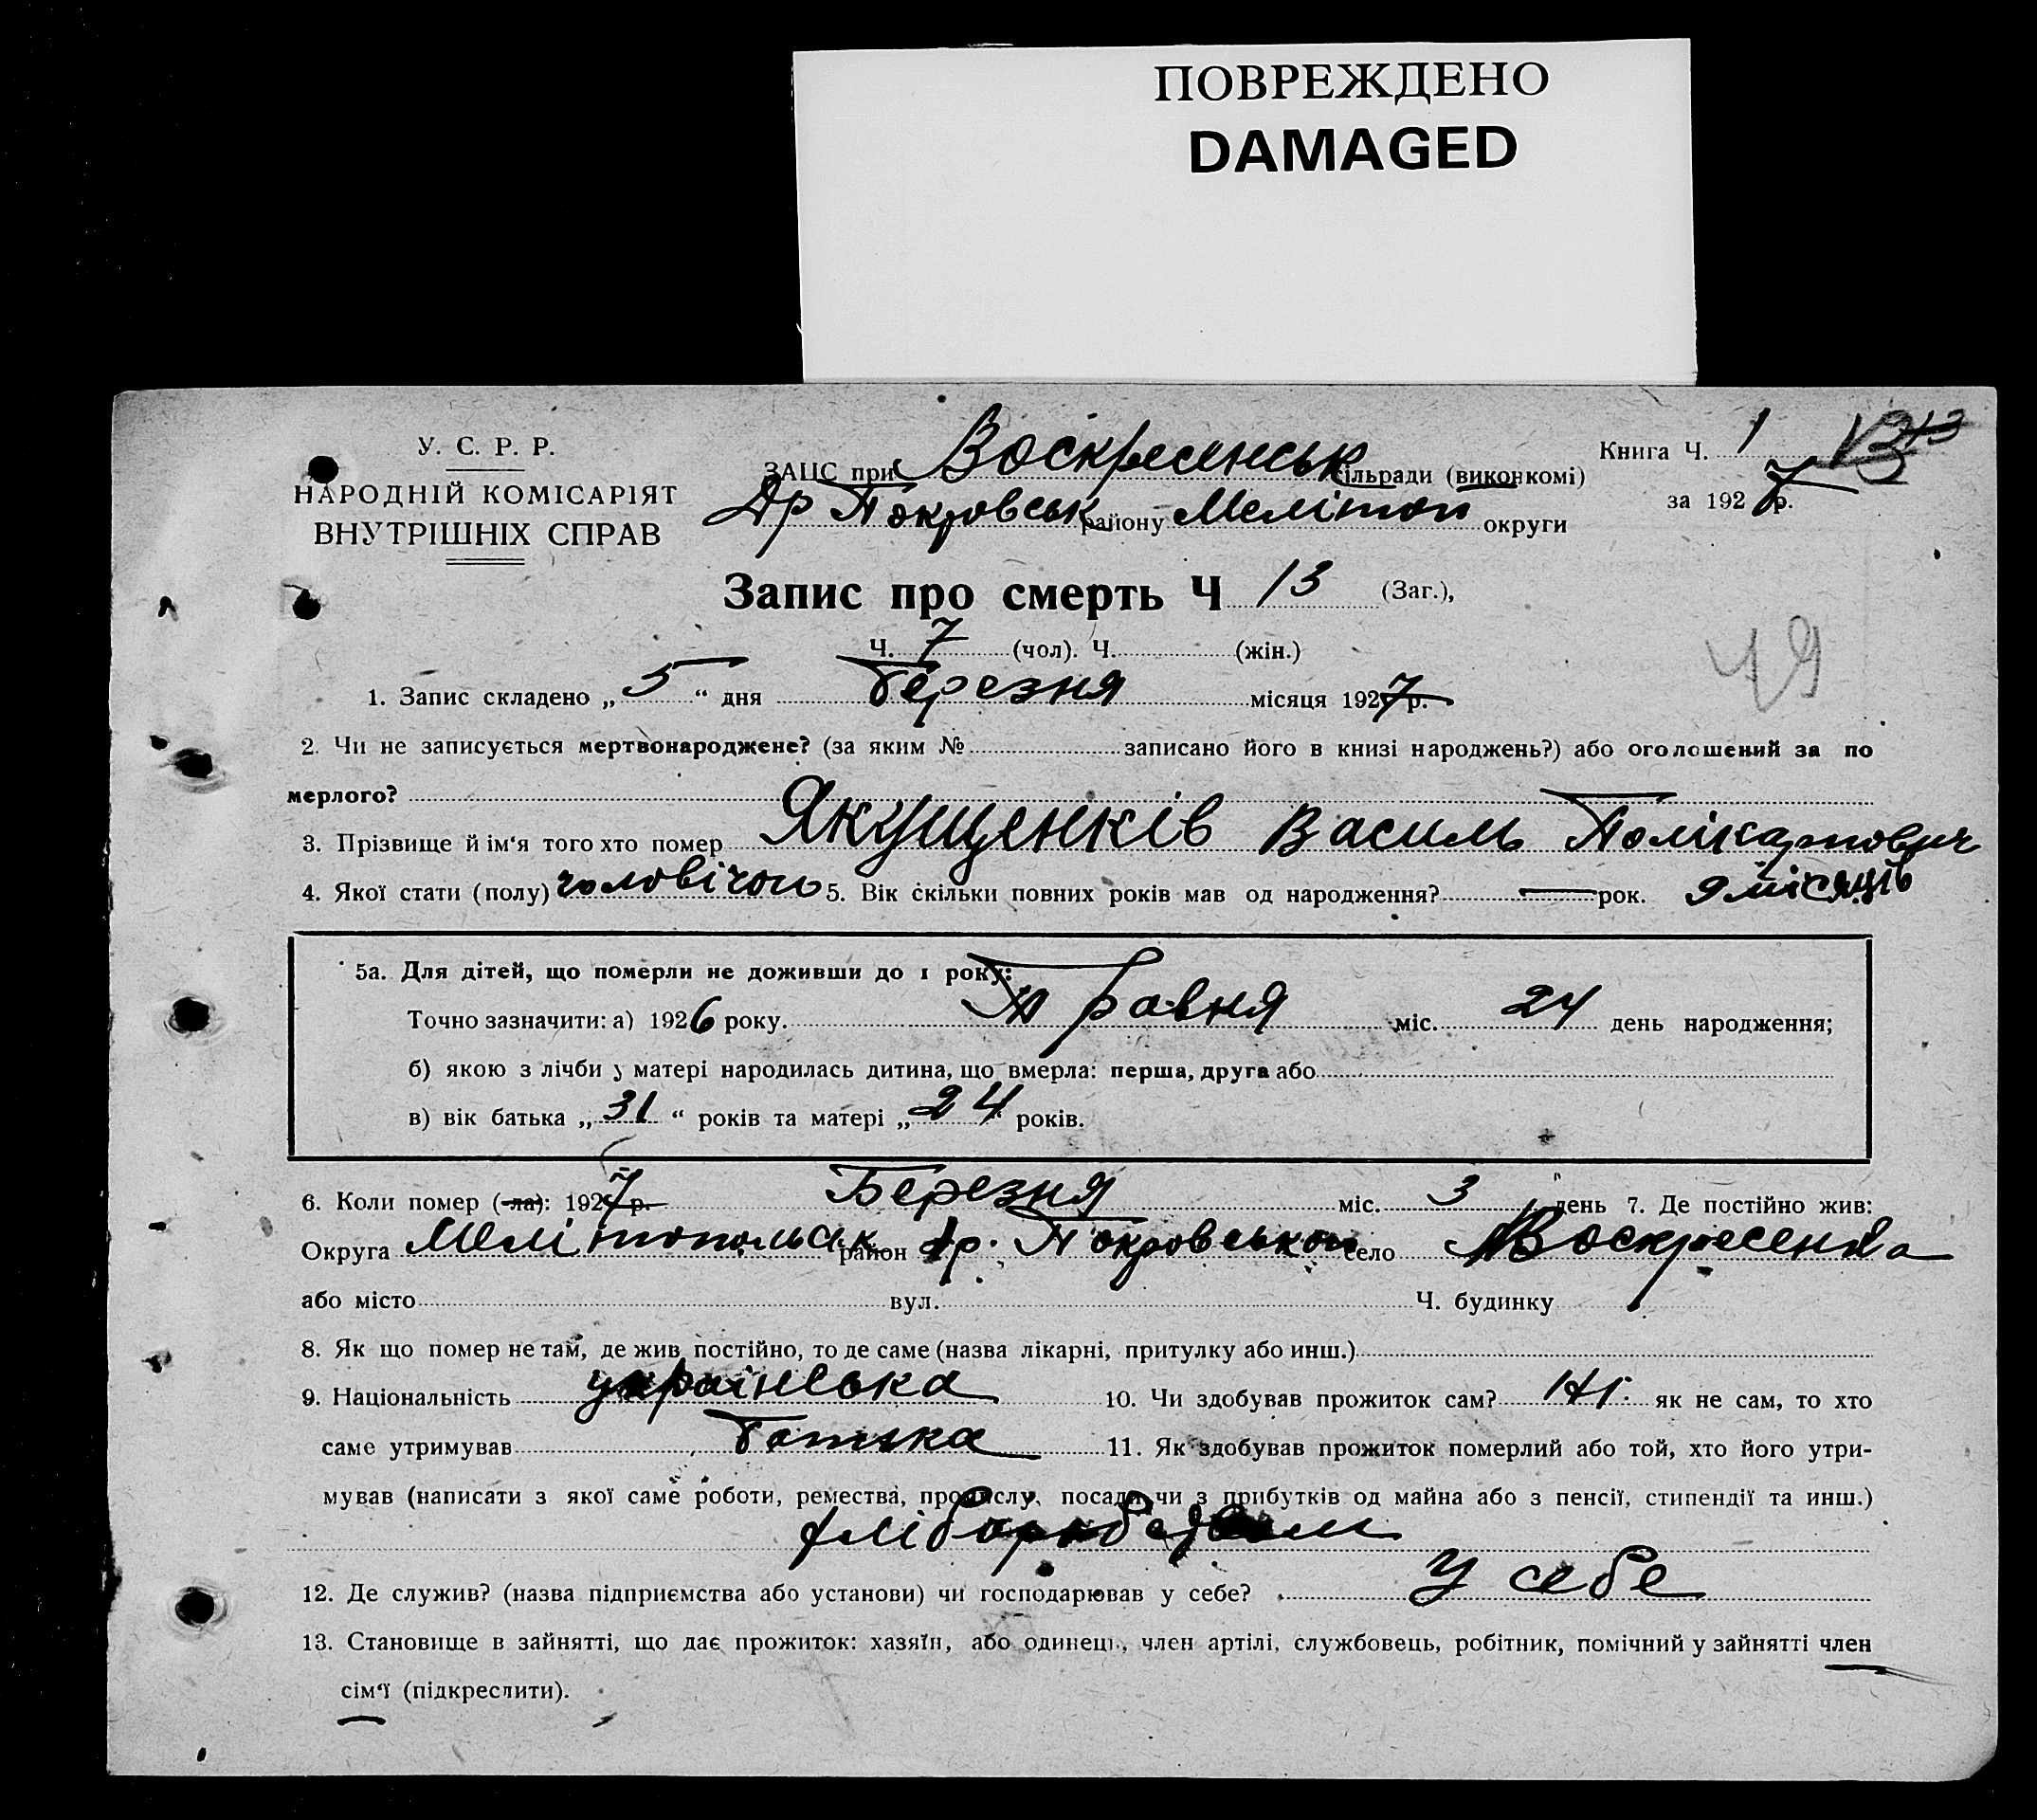 ПОВРЕЖДЕНО
DAMAGED
У. С. Р. Р.
НАРОДНІЙ КОМІСАРІЯТ
ВНУТРІШНІХ СПРАВ
ЗАЦС при Воскресенськ сільради (виконкомі)
Др Покровськ району Меліtоп округи
Книга Ч. 1 13
за 1927 р.
Запис про смерть Ч 13 (Заг.),
Ч. 7 (чол). Ч. (жін.)
49
1. Запис складено „ 5 “ дня Березня місяця 1927 р.
2. Чи не записується мертвонароджене? (за яким № записано його в книзі народжень?) або оголошений за по
мерлого?
3. Прізвище й ім'я того хто помер Якущенків Василь Полікарпович
4. Якої стати (полу) чоловічого 5. Вік скільки повних років мав од народження? — рок. 9 місяців
5а. Для дітей, що померли не доживши до 1 року:
Точно зазначити: а) 1926 року. Травня міс. 24 день народження;
б) якою з лічби у матері народилась дитина, що вмерла: перша, друга або
в) вік батька „ 31 “ років та матері „ 24 “ років.
6. Коли помер (-ла): 1927 р. Березня міс. 3 день 7. Де постійно жив:
Округа Мелітопольськ район др. Покровського село Воскресенка
або місто вул. Ч. будинку
8. Як що помер не там, де жив постійно, то де саме (назва лікарні, притулку або инш.)
9. Національність українська 10. Чи здобував прожиток сам? Ні. як не сам, то хто
саме утримував Батька 11. Як здобував прожиток померлий або той, хто його утри-
мував (написати з якої саме роботи, ремества, промислу, посади чи з прибутків од майна або з пенсії, стипендії та инш.)
12. Де служив? (назва підприємства або установи) чи господарював у себе? У себе
13. Становище в зайнятті, що дає прожиток: хазяїн, або одинець, член артілі, службовець, робітник, помічний у зайнятті член
сім'ї (підкреслити).